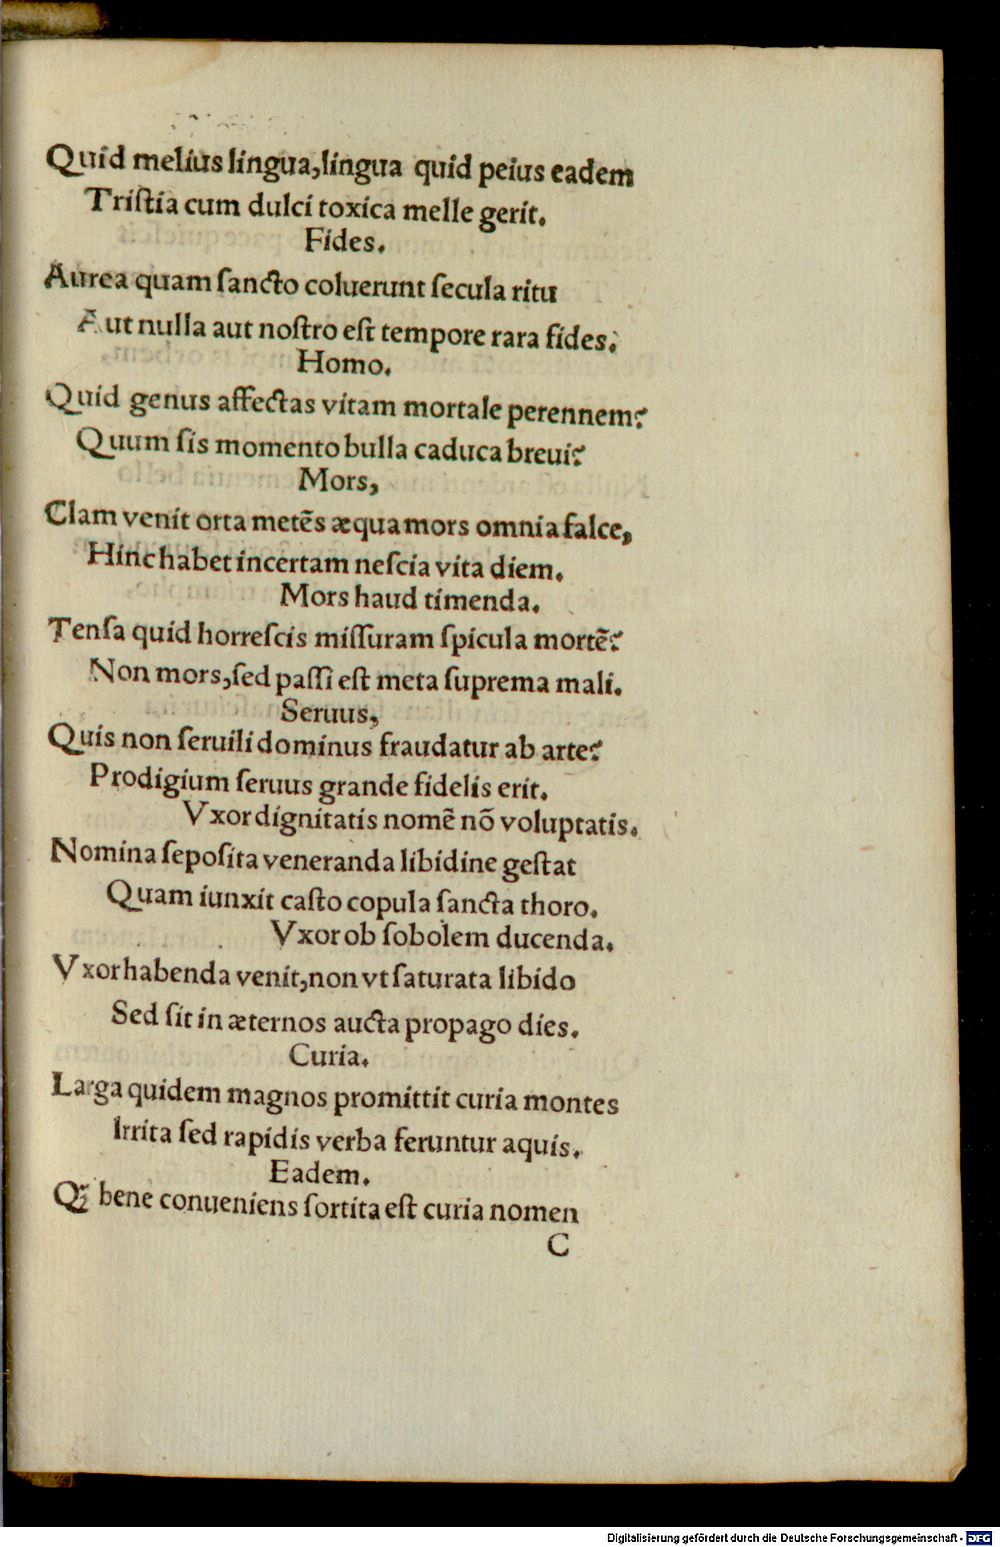 Quid melius lingua,lingua quid peius eadem
Triſtia cum dulci toxica melle gerit.
Fides.
Aurea quam ſancto coluerunt ſecula ritu
Aut nulla aut noſtro eſt tempore rara fides.
Homo.
Quid genus affectas vitam mortale perennem?
Quum ſis momento bulla caduca breui?
Mors,
Clam venit orta metēs æqua mors omnia falce,
Hinc habet incertam neſcia vita diem.
Mors haud timenda.
Tenſa quid horreſcis miſſuram ſpicula mortē?
Non mors,ſed paſſi eſt meta ſuprema mali.
Seruus,
Quis non ſeruili dominus fraudatur ab arte?
Prodigium ſeruus grande fidelis erit.
Vxor dignitatis nomē nō voluptatis.
Nomina ſepoſita veneranda libidine geſtat
Quam iunxit caſto copula ſancta thoro.
Vxor ob ſobolem ducenda.
Vxor habenda venit,non vt ſaturata libido
Sed ſit in æternos aucta propago dies.
Curia.
Larga quidem magnos promittit curia montes
Irrita ſed rapidis verba feruntur aquis.
Eadem.
Qꝫ bene conueniens ſortita eſt curia nomen
C
Digitalisierung gefördert durch die Deutsche Forschungsgemeinschaft - DFG